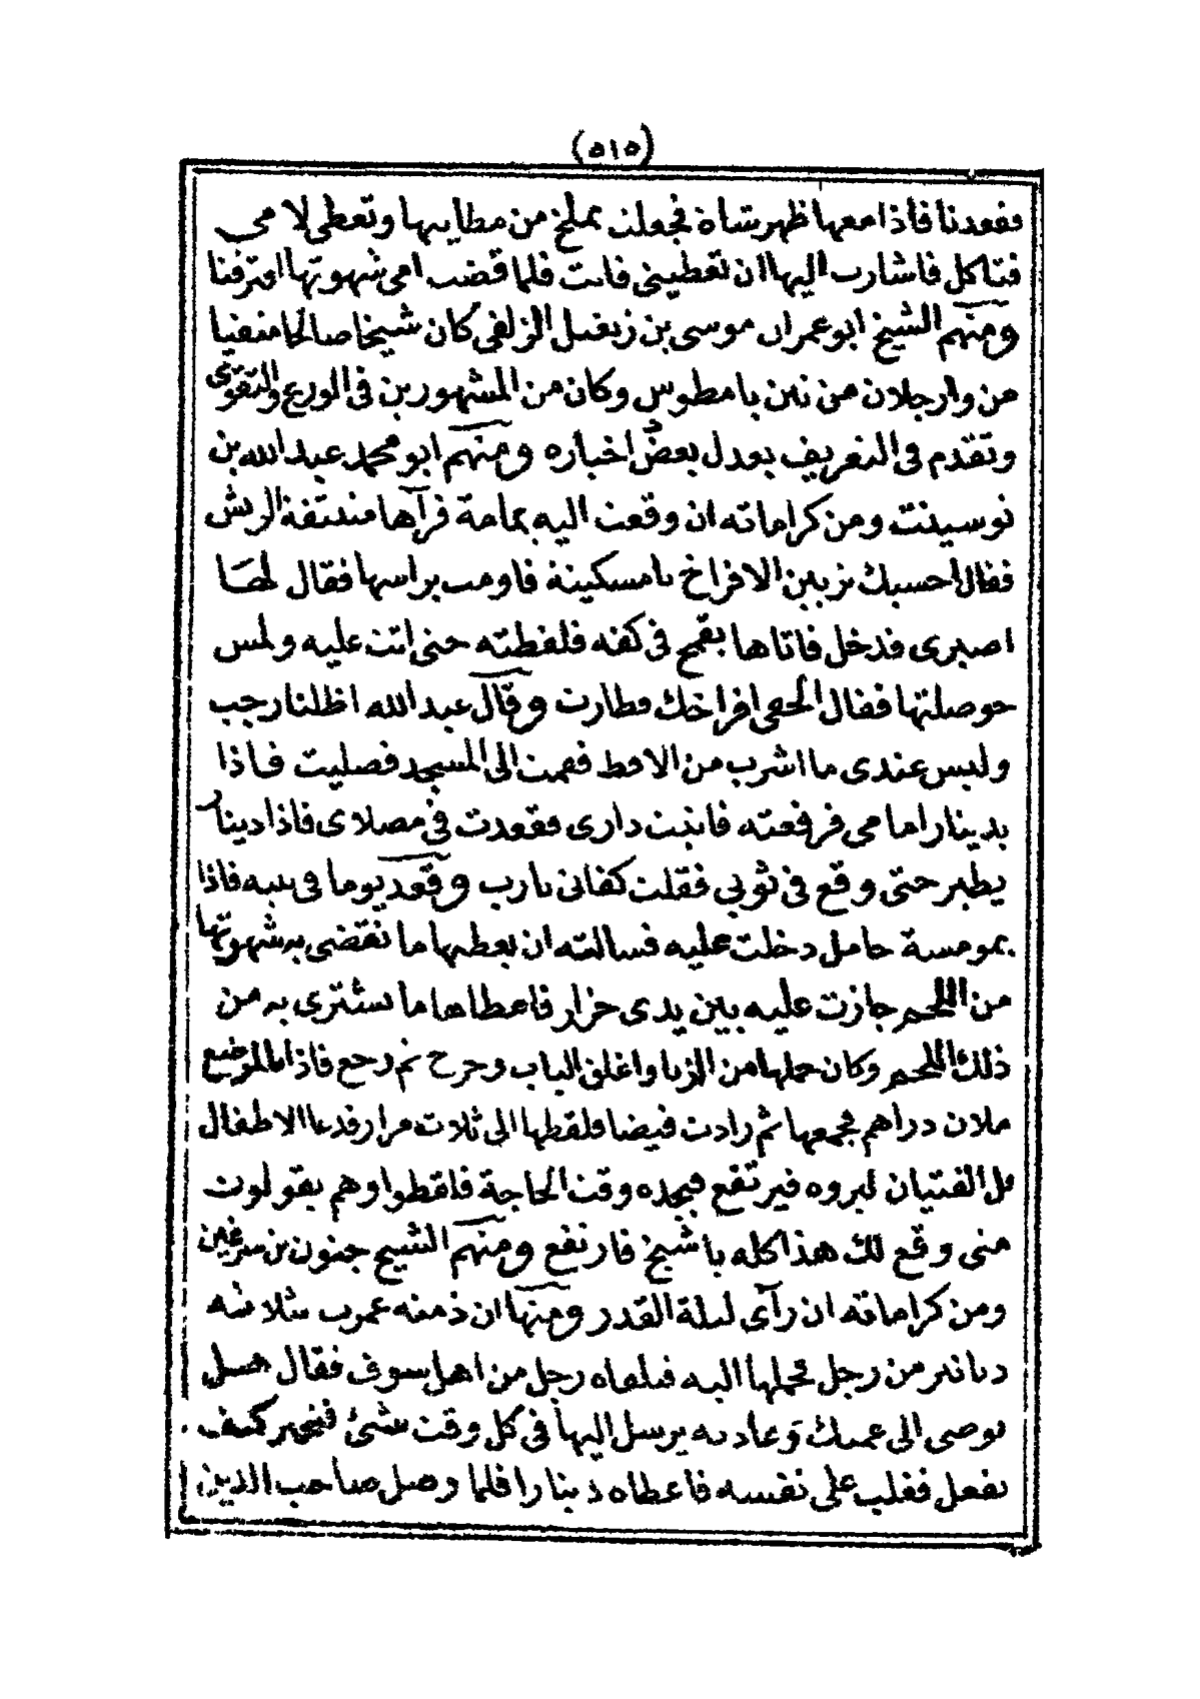 (٥١٥)
فقعدنا فاذا معها ظهر شاة فجعلت تملخ من مطايبها وتعطي لامي
فتاكل فاشارت اليها ان تعطيني فابت فلما قضت امي شهوتها افترقنا
ومنهم الشيخ ابو عمران موسى بن زيغسل الزلفي كان شيخا صالحا مفتيا
من وارجلان من تين بامطوس وكان من المشهورين في الورع والتقوى
وتقدم في التعريف بعدل بعض اخباره ومنهم ابو محمد عبد الله بن
نوسينت ومن كراماته ان وقعت اليه يمامة فرآها منتتفة الريش
فقال احسبك تربين الافراخ يا مسكينة فاومت براسها فقال لهــا
اصبرى فدخل فاتاها بقمح في كفه فلقطته حتى اتت عليه ولمس
حوصلتها فقال الحقي افراخك فطارت وقال عبد الله اظلنا رجب
وليس عندى ما اشرب من الاقط فقمت الى المسجد فصليت فــاذا
بدينار امامي فرفعته فاتيت دارى فقعدت في مصلاى فاذا دينار
يطير حتى وقع في ثوبي فقلت كفاني يارب وقعد يوما في بيته فاذا
بمومسة حامل دخلت عليه فسالته ان يعطيها ما تقضي به شهوتها
من اللحم جازت عليه بين يدى جزار فاعطاها ما تشترى به من
ذلك اللحم وكان حملها من الزنا واغلق الباب وخرج ثم رجع فاذا بالموضع
ملان دراهم فجمعها ثم زادت فيضا فلقطها الى ثلاث مرار فدعا الاطفال
قبل الفتيان ليروه فيرتفع فيجده وقت الحاجة فلقطوا وهم يقولون
متى وقع لك هذا كله يا شيخ فارتفع ومنهم الشيخ جنون بن سرغين
ومن كراماته ان رآى ليلة القدر ومنها ان ذمته عمرت بثلاثة
دنانير من رجل فحملها اليه فلقاه رجل من اهل سوف فقال هــل
توصي الى عمتك وعادته يرسل اليها في كل وقت بشئ فتحير كيف
يفعل فغلب على نفسه فاعطاه دينارا فلما وصل صاحب الدين